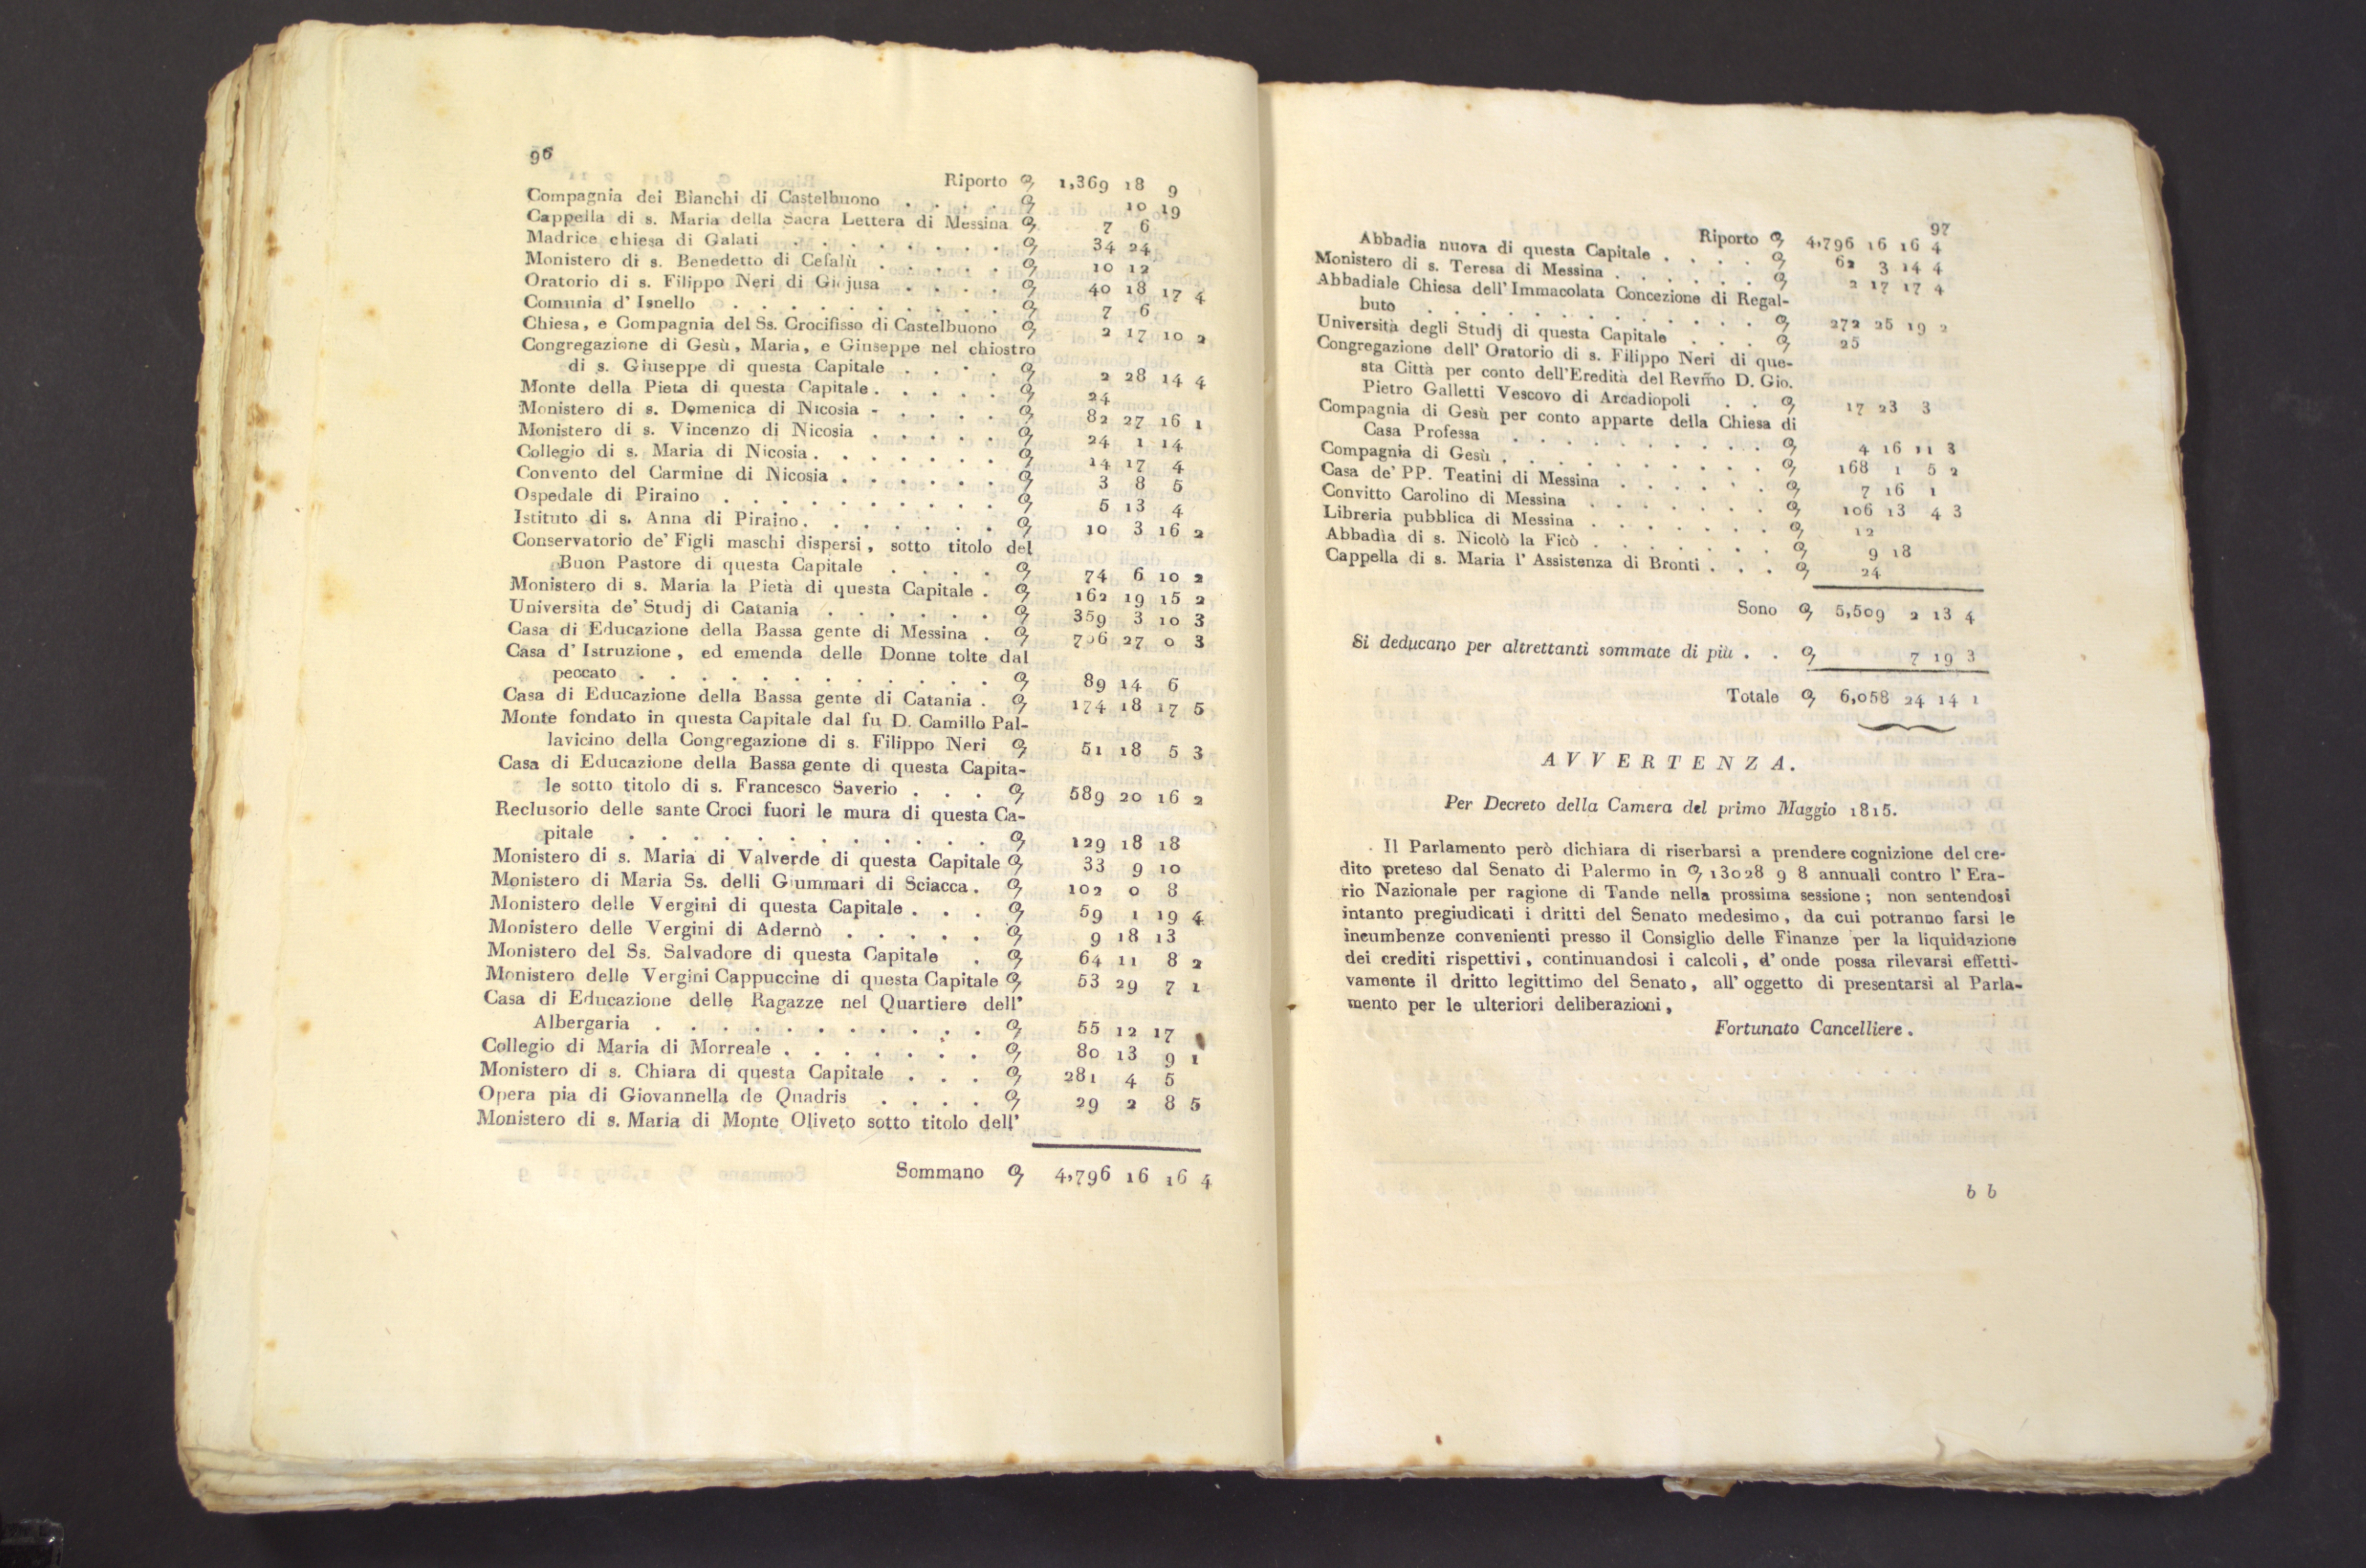 96
Riporto 1,369 18 9
Compagnia dei Bianchi di Castelbuono . . . . 10 19
Cappella di s. Maria della Sacra Lettera di Messina 7 6
Madrice chiesa di Galati . . . . . . . . 34 24
Monistero di s. Benedetto di Cefalù . . . . . 10 12
Oratorio di s. Filippo Neri di Giojusa . . . . 40 18 17 4
Comunia d' Isnello . . . . . . . . . 7 6
Chiesa, e Compagnia del Ss. Crocifisso di Castelbuono 2 17 10 2
Congregazione di Gesù, Maria, e Giuseppe nel chiostro
di s. Giuseppe di questa Capitale . . . . 2 28 14 4
Monte della Pieta di questa Capitale . . . . . 24
Monistero di s. Domenica di Nicosia - . . . . 82 27 16 1
Monistero di s. Vincenzo di Nicosia . . . . . 24 1 14
Collegio di s. Maria di Nicosia . . . . . . . 14 17 4
Convento del Carmine di Nicosia . . . . . . 3 8 5
Ospedale di Piraino . . . . . . . . . 5 13 4
Istituto di s. Anna di Piraino . . . . . . . 10 3 16 2
Conservatorio de' Figli maschi dispersi, sotto titolo del
Buon Pastore di questa Capitale . . . . 74 6 10 2
Monistero di s. Maria la Pietà di questa Capitale . 162 19 15 2
Universita de' Studj di Catania . . . . . . 359 3 10 3
Casa di Educazione della Bassa gente di Messina . 706 27 0 3
Casa d' Istruzione, ed emenda delle Donne tolte dal
peccato . . . . . . . . . . . . 89 14 6
Casa di Educazione della Bassa gente di Catania . 174 18 17 5
Monte fondato in questa Capitale dal fu D. Camillo Pal-
lavicino della Congregazione di s. Filippo Neri 51 18 5 3
Casa di Educazione della Bassa gente di questa Capita-
le sotto titolo di s. Francesco Saverio . . . 589 20 16 2
Reclusorio delle sante Croci fuori le mura di questa Ca-
pitale . . . . . . . . . . . . 129 18 18
Monistero di s. Maria di Valverde di questa Capitale 33 9 10
Monistero di Maria Ss. delli Giummari di Sciacca . 102 0 8
Monistero delle Vergini di questa Capitale . . . 59 1 19 4
Monistero delle Vergini di Adernò . . . . . 9 18 13
Monistero del Ss. Salvadore di questa Capitale . 64 11 8 2
Monistero delle Vergini Cappuccine di questa Capitale 53 29 7 1
Casa di Educazione delle Ragazze nel Quartiere dell'
Albergaria . . . . . . . . . . . 55 12 17
Collegio di Maria di Morreale . . . . . . . 80 13 9 1
Monistero di s. Chiara di questa Capitale . . . 281 4 5
Opera pia di Giovannella de Quadris . . . . 29 2 8 5
Monistero di s. Maria di Monte Oliveto sotto titolo dell'
Sommano 4,796 16 16 4
97
Riporto 4,796 16 16 4
Abbadia nuova di questa Capitale . . . . 62 3 14 4
Monistero di s. Teresa di Messina . . . . . . 2 17 17 4
Abbadiale Chiesa dell' Immacolata Concezione di Regal-
buto . . . . . . . . . . . . 272 25 19 2
Università degli Studj di questa Capitale . . . 25
Congregazione dell' Oratorio di s. Filippo Neri di que-
sta Città per conto dell'Eredità del Revm̃o D. Gio.
Pietro Galletti Vescovo di Arcadiopoli . . 17 23 3
Compagnia di Gesù per conto apparte della Chiesa di
Casa Professa . . . . . . . . . 4 16 11 3
Compagnia di Gesù . . . . . . . . . . 168 1 5 2
Casa de' PP. Teatini di Messina . . . . . . 7 16 1
Convitto Carolino di Messina . . . . . . . 106 13 4 3
Libreria pubblica di Messina . . . . . . . 12
Abbadia di s. Nicolò la Ficò . . . . . . . 9 18
Cappella di s. Maria l' Assistenza di Bronti . . . 24
Sono 5,509 2 13 4
Si deducano per altrettanti sommate di più . . 7 19 3
Totale 6,058 24 14 1
AVVERTENZA.
Per Decreto della Camera del primo Maggio 1815.
Il Parlamento però dichiara di riserbarsi a prendere cognizione del cre-
dito preteso dal Senato di Palermo in 13028 9 8 annuali contro l' Era-
rio Nazionale per ragione di Tande nella prossima sessione; non sentendosi
intanto pregiudicati i dritti del Senato medesimo, da cui potranno farsi le
incumbenze convenienti presso il Consiglio delle Finanze per la liquidazione
dei crediti rispettivi, continuandosi i calcoli, d' onde possa rilevarsi effetti-
vamente il dritto legittimo del Senato, all' oggetto di presentarsi al Parla-
mento per le ulteriori deliberazioni,
Fortunato Cancelliere.
b b